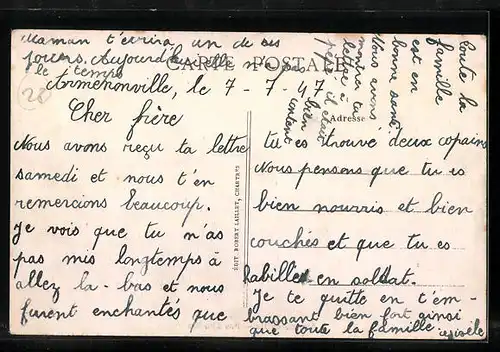 Maman t'écrira un de ses
jours. Aujourd'hui elle n'a pas
le temps
CARTE POSTALE
Adresse
28
Armenonville, le 7-7-47
Cher frère
Nous avons reçu ta lettre
samedi et nous t'en
remercions beaucoup.
Je vois que tu n'as
pas mis longtemps à
allez la-bas et nous
furent enchantés que
ÉDIT. ROBERT LAILLET, CHARTRES
tu es trouvé deux copains
Nous pensons que tu es
bien nourris et bien
couchés et que tu es
abillé en soldat.
Je te quitte en t'em-
brassant bien fort ainsi
que toute la famille
Gisèle
Toute la
famille
est en
bonne santé.
Nous avons
montré ta
lettre à
pépé il était
bien
content